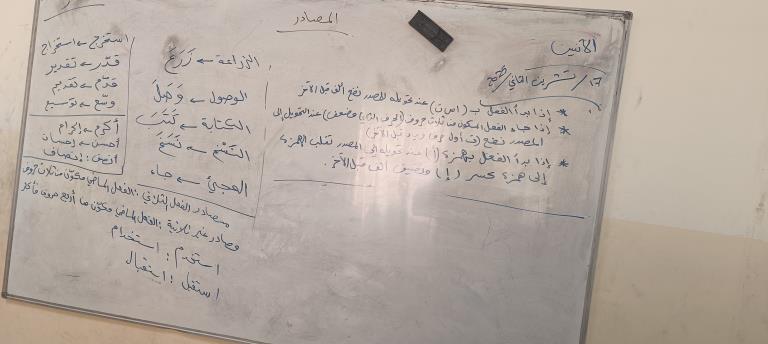 المصادر
الاثنين
١٧/ تشرين الثاني/
* إذا بدأ الفعل بـ (است) عند تحويله للمصدر نضع ألف قبل الآخر
* إذا جاء الفعل المكون من ثلاث حروف (الحرف الثاني مضعف) عند التحويل إلى
المصدر نضع (ت أول حرف و ي قبل الآخر)
* إذا بدأ الفعل بهمزة (أ) عند تحويله إلى المصدر تقلب الهمزة
إلى همزة بكسر (إ) ونضيف ألف قبل الآخر.
الزراعة ← زَرَعَ
الوصول ← وَصَلَ
الكتابة ← كَتَبَ
← نَسَخَ
المجيئ ← جاء
استخرج ← استخراج
قدّر ← تقدير
قدّم ← تقديم
وسّع ← توسيع
أكرم ← إكرام
أحسن ← إحسان
أنصف: إنصاف
مصادر الفعل الثلاثي: الفعل الماضي مكوّن من ثلاث حروف
مصادر غير ثلاثية: الفعل الماضي مكوّن من أربع حروف فأكثر
استخدم: استخدام
استقبل: استقبال